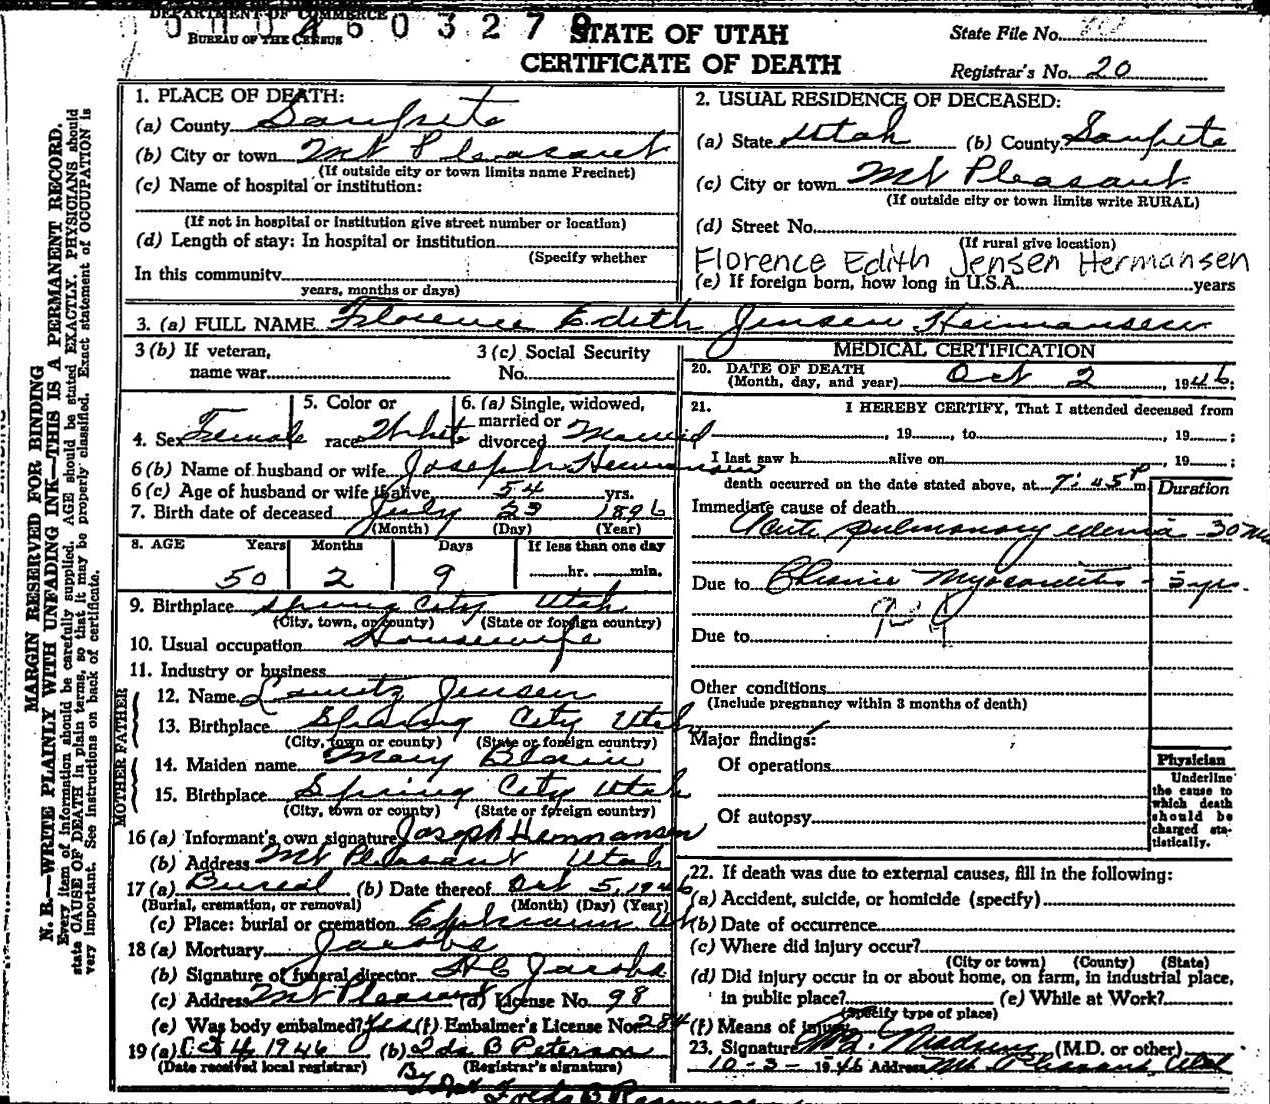 DEPARTMENT OF COMMERCE
BUREAU OF THE CENSUS
0 0 0 4 6 0 3 2 7 9
STATE OF UTAH
CERTIFICATE OF DEATH
State File No.
Registrar's No. 20
MARGIN RESERVED FOR BINDING
N. B.—WRITE PLAINLY WITH UNFADING INK—THIS IS A PERMANENT RECORD.
Every item of information should be carefully supplied. AGE should be stated EXACTLY. PHYSICIANS should
state CAUSE OF DEATH in plain terms, so that it may be properly classified. Exact statement of OCCUPATION is
very important. See instructions on back of certificate.
1. PLACE OF DEATH:
(a) County Sanpete
(b) City or town Mt Pleasant
(If outside city or town limits name Precinct)
(c) Name of hospital or institution:
(If not in hospital or institution give street number or location)
(d) Length of stay: In hospital or institution
(Specify whether
In this community
years, months or days)
2. USUAL RESIDENCE OF DECEASED:
(a) State Utah (b) County Sanpete
(c) City or town Mt Pleasant
(If outside city or town limits write RURAL)
(d) Street No.
(If rural give location)
Florence Edith Jensen Hermansen
(e) If foreign born, how long in U.S.A. years
3. (a) FULL NAME Florence Edith Jensen Hermansen
3 (b) If veteran,
name war
3 (c) Social Security
No.
4. Sex Female
5. Color or
race White
6. (a) Single, widowed,
married or
divorced Married
6 (b) Name of husband or wife Joseph Hermansen
6 (c) Age of husband or wife if alive, 54 yrs.
7. Birth date of deceased July 23 1896
(Month) (Day) (Year)
8. AGE Years Months Days If less than one day
50 2 9 hr. min.
9. Birthplace Spring City Utah
(City, town, or county) (State or foreign country)
10. Usual occupation Housewife
11. Industry or business
FATHER
12. Name Lauritz Jensen
13. Birthplace Spring City Utah
(City, town or county) (State or foreign country)
MOTHER
14. Maiden name Mary Blain
15. Birthplace Spring City Utah
(City, town or county) (State or foreign country)
16 (a) Informant's own signature Joseph Hermansen
(b) Address Mt Pleasant Utah
17 (a) Burial (b) Date thereof Oct 5, 1946
(Burial, cremation, or removal) (Month) (Day) (Year)
(c) Place: burial or cremation Ephraim Ut
18 (a) Mortuary Jacobs
(b) Signature of funeral director H C Jacobs
(c) Address Mt Pleasant (d) License No. 98
(e) Was body embalmed? Yes (f) Embalmer's License No. 284
19 (a) Oct 4 1946 (b) Ida B Peterson
(Date received local registrar) (Registrar's signature)
By
MEDICAL CERTIFICATION
20. DATE OF DEATH
(Month, day, and year) Oct 2, 1946;
21. I HEREBY CERTIFY, That I attended deceased from
, 19 , to , 19 ;
I last saw h alive on , 19 ;
death occurred on the date stated above, at 7:45 P m.
Duration
Immediate cause of death
Acute pulmonary edema - 30 Min
Due to Chronic Myocarditis - 5 yrs.
Due to
Other conditions
(Include pregnancy within 3 months of death)
Major findings:
Of operations
Of autopsy
Physician
Underline
the cause to
which death
should be
charged sta-
tistically.
22. If death was due to external causes, fill in the following:
(a) Accident, suicide, or homicide (specify)
(b) Date of occurrence
(c) Where did injury occur?
(City or town) (County) (State)
(d) Did injury occur in or about home, on farm, in industrial place,
in public place? (e) While at Work?
(Specify type of place)
(f) Means of injury
23. Signature Madsen (M.D. or other)
10-3-1946 Address Mt Pleasant, Utah